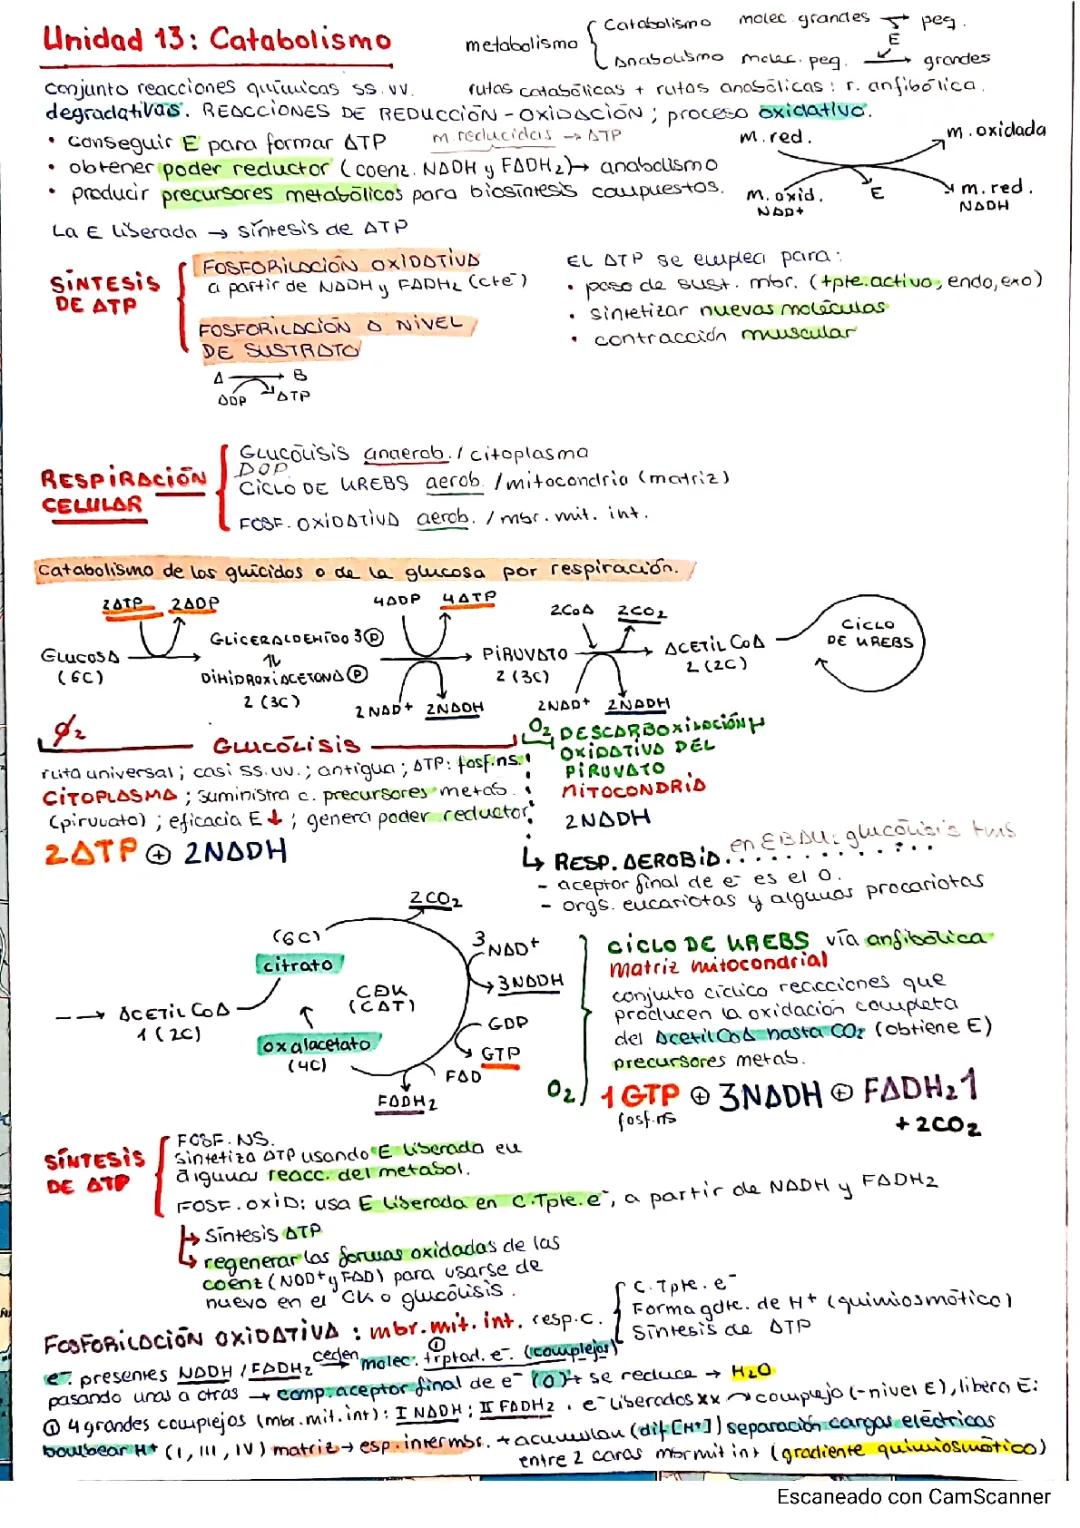 Unidad 13: Catabolismo
metabolismo
Catabolismo molec. grandes → peq.
E
Anabolismo molec. peq. → grandes
conjunto reacciones químicas ss.vv.
rutas catabólicas + rutas anabólicas: r. anfibólica.
degradativas. REACCIONES DE REDUCCIÓN-OXIDACIÓN; proceso oxidativo.
• conseguir E para formar ATP
m. reducidas → ATP
• obtener poder reductor (coenz. NADH y FADH2) → anabolismo
• producir precursores metabólicos para biosíntesis compuestos.
m. red. m. oxidada
m. oxid. E m. red.
NAD+ NADH
La E liberada → síntesis de ATP
SÍNTESIS DE ATP
FOSFORILACIÓN OXIDATIVA
a partir de NADH y FADH2 (cte-)
FOSFORILACIÓN A NIVEL
DE SUSTRATO
A → B
ADP ATP
EL ATP se emplea para:
• paso de sust. mbr. (tpte.activo, endo, exo)
• sintetizar nuevas moléculas
• contracción muscular
RESPIRACIÓN CELULAR
GLUCÓLISIS anaerob. / citoplasma
DOP
CICLO DE KREBS aerob. / mitocondria (matriz)
FOSF. OXIDATIVA aerob. / mbr. mit. int.
Catabolismo de los glúcidos o de la glucosa por respiración.
2ATP 2ADP 4ADP 4ATP 2CoA 2CO2
GLUCOSA (6C)
GLICERALDEHÍDO 3 P
DIHIDROXIACETONA P
2 (3C)
2 NAD+ 2NADH
PIRUVATO
2 (3C)
2NAD+ 2NADH
ACETIL CoA
2 (2C)
CICLO
DE KREBS
O2 GLUCÓLISIS
ruta universal; casi ss.vv.; antigua; ATP: fosf.ns.
CITOPLASMA; suministra c. precursores metab.
(piruvato); eficacia E ↓; genera poder reductor
2ATP ⊕ 2NADH
O2 DESCARBOXILACIÓN
OXIDATIVA DEL
PIRUVATO
MITOCONDRIA
2NADH
↳ RESP. AEROBIA
en EBAU: glucólisis
- aceptor final de e- es el O.
- orgs. eucariotas y algunos procariotas
2CO2
(6C)
citrato
3 NAD+
3NADH
→ ACETIL CoA
1 (2C)
CDK
(CAT)
GDP
GTP
oxalacetato
(4C)
FAD
FADH2
CICLO DE KREBS vía anfibólica
matriz mitocondrial
conjunto cíclico reacciones que
producen la oxidación completa
del Acetil CoA hasta CO2 (obtiene E)
precursores metab.
O2
1GTP ⊕ 3NADH ⊕ FADH2 1
fosf.ns
+ 2CO2
SÍNTESIS DE ATP
FOSF. NS.
Sintetiza ATP usando E liberada en
algunas reacc. del metabol.
FOSF. OXID: usa E liberada en C.Tpte.e-, a partir de NADH y FADH2
↳ Síntesis ATP
↳ regenerar las formas oxidadas de las
coenz (NAD+ y FAD) para usarse de
nuevo en el CK o glucólisis.
FOSFORILACIÓN OXIDATIVA: mbr. mit. int. resp.c.
C. Tpte. e-
Forma gdte. de H+ (quimiosmótico)
Síntesis de ATP
e- presentes NADH / FADH2 ceden → molec. trptad. e-. (complejos) ①
pasando unas a otras → comp. aceptor final de e- (O) → se reduce → H2O
① 4 grandes complejos (mbr. mit. int): I NADH; II FADH2. e- liberados xx → complejo (-nivel E), libera E:
bombear H+ (I, III, IV) matriz → esp. intermbr. → acumulan (dif [H+]) separación cargas eléctricas
entre 2 caras mbr mit int (gradiente quimiosmótico)
Escaneado con CamScanner